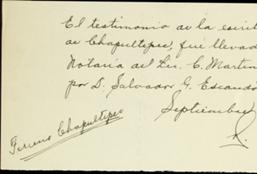 El testimonio de la escrit
de Chapultepec, fué llevad
Notaría del Lic. C. Martín
por D. Salvador G. Escando
Septiembre
Terreno Chapultepec